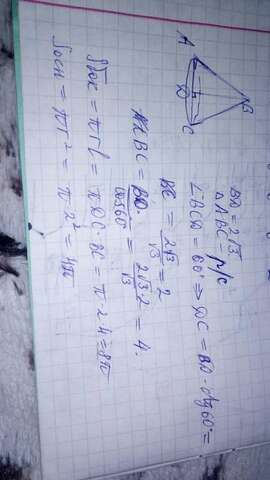 A
B
D
C
BD = 2√3
△ABC – р/с
∠BCD = 60° ⇒ DC = BD · ctg 60° =
= 2√3/√3 = 2
BC = BD/cos60° = 2√3·2/√3 = 4.
Sбок = πrl = π DC · BC = π · 2 · 4 = 8π
Sосн = πr² = π · 2² = 4π